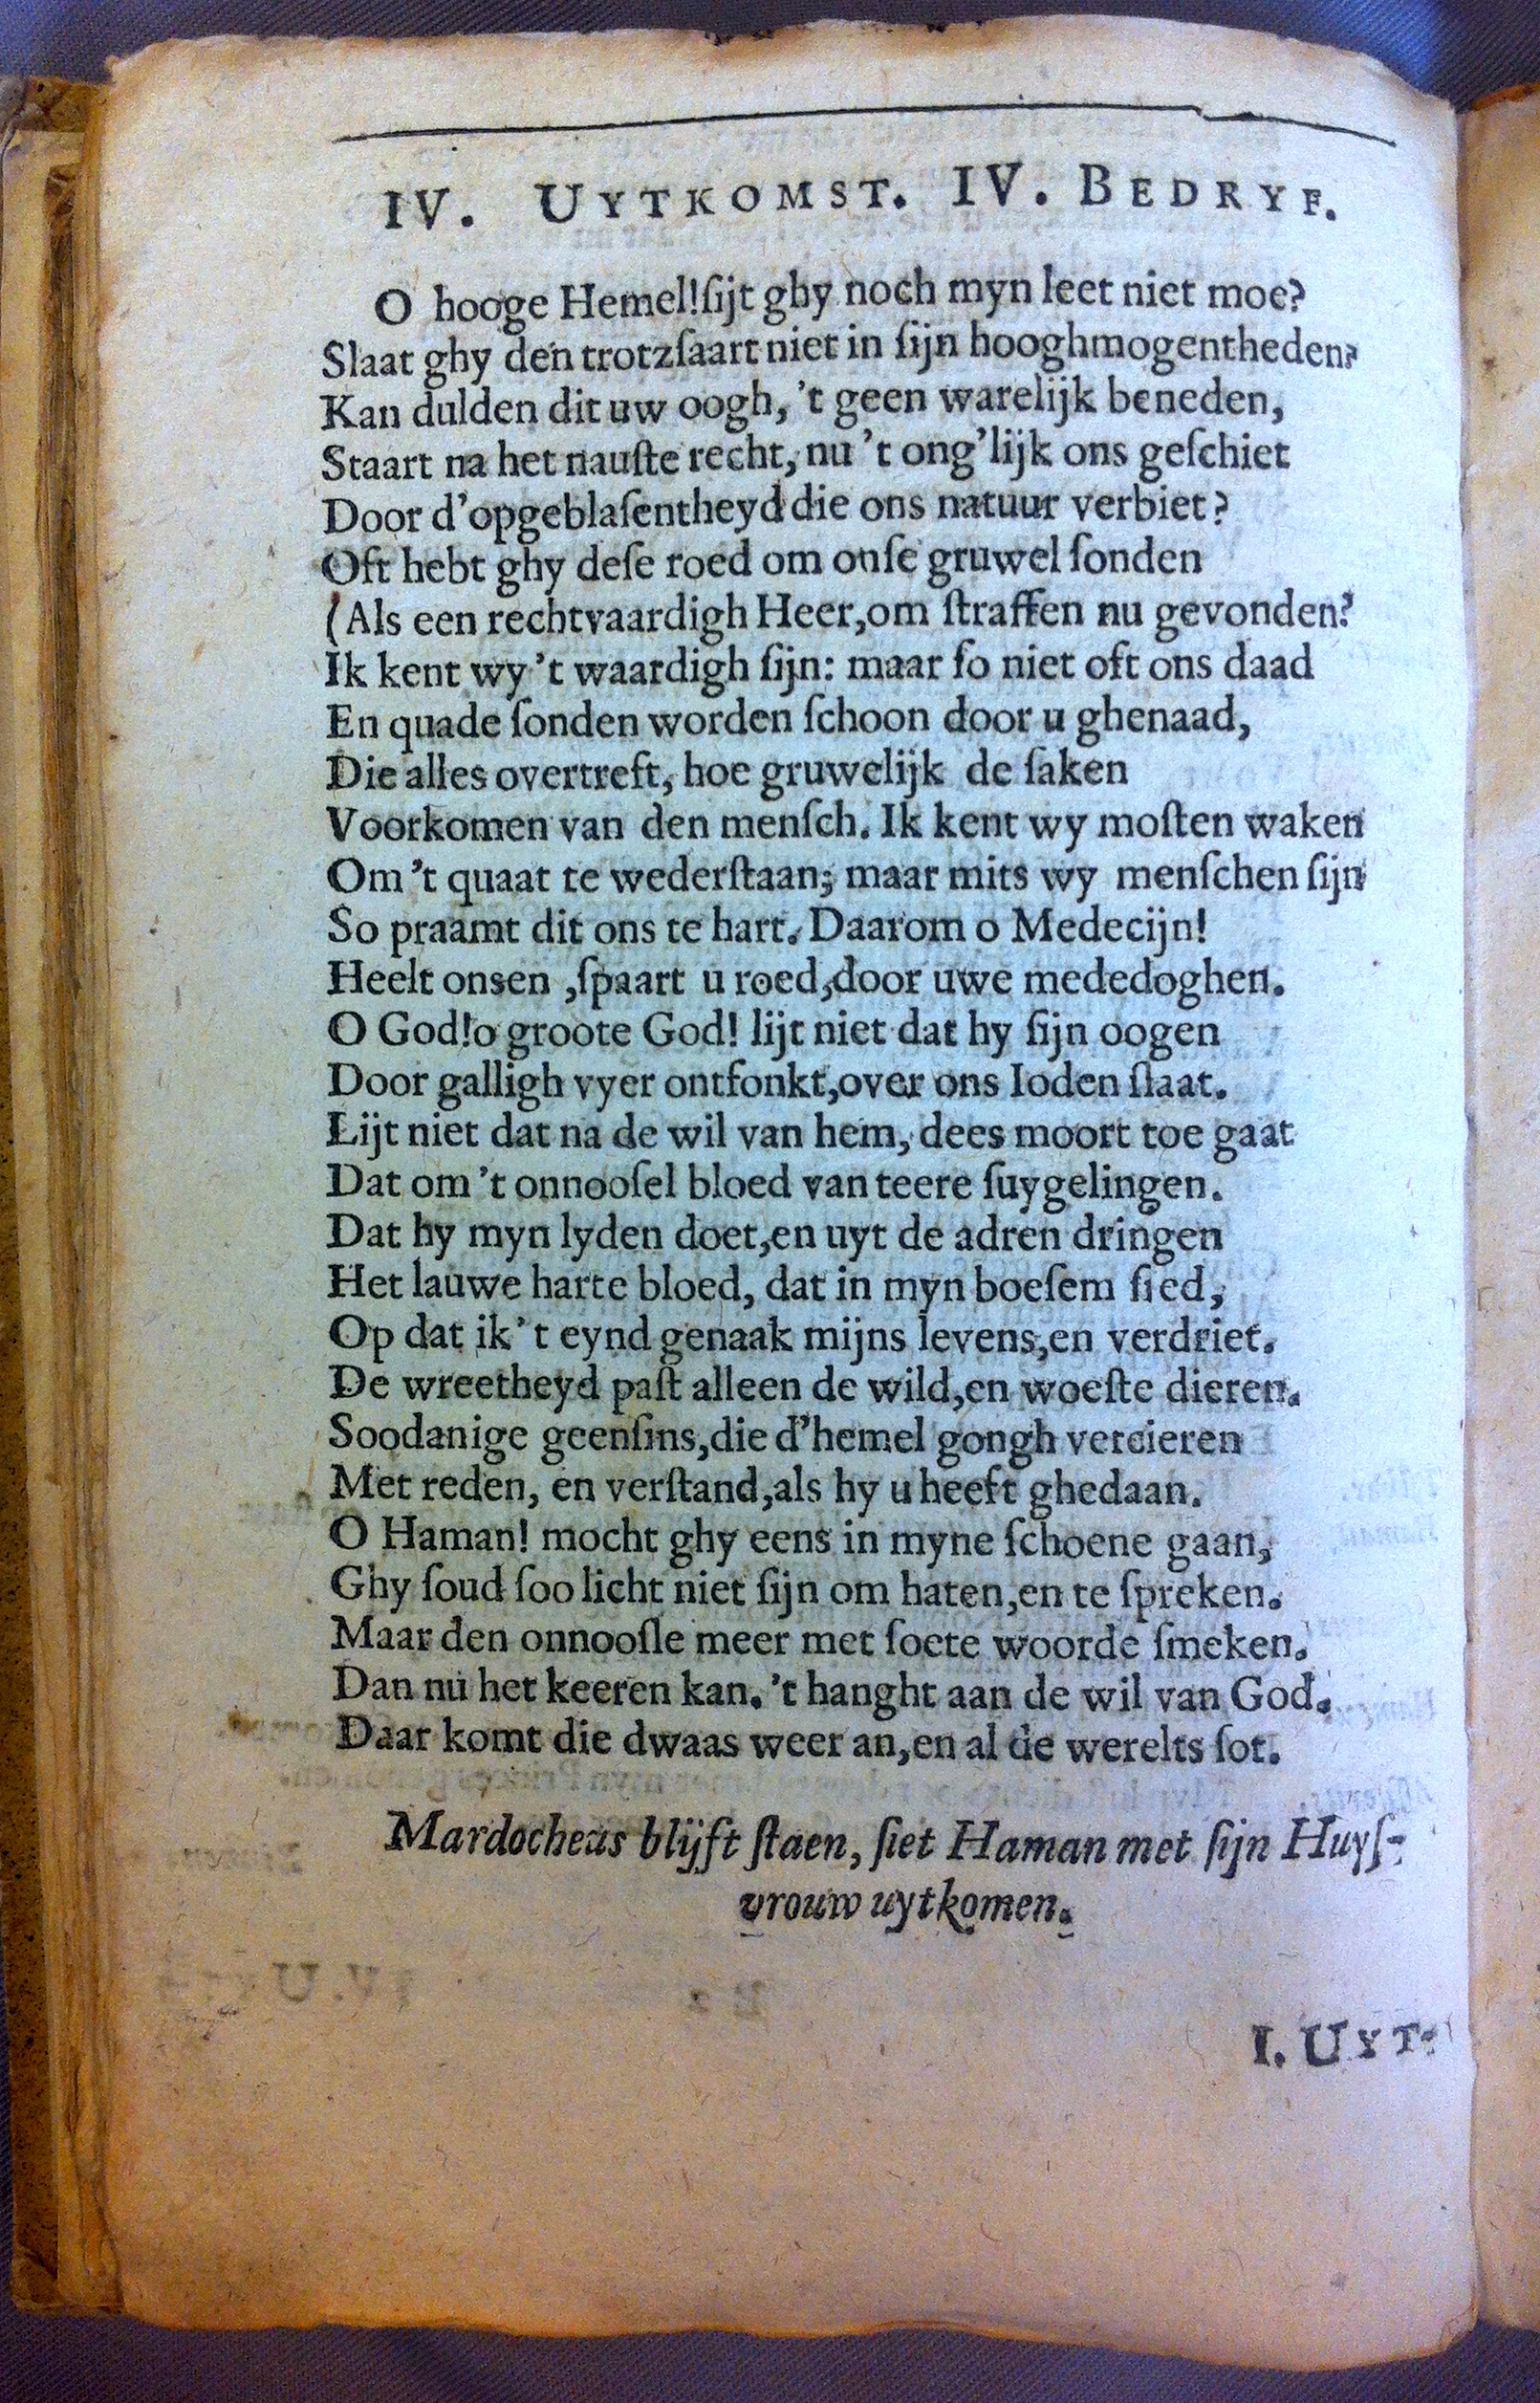 IV. UYTKOMST. IV. BEDRYF.
O hooge Hemel!ſijt ghy noch myn leet niet moe?
Slaat ghy den trotzſaart niet in ſijn hooghmogentheden?
Kan dulden dit uw oogh, 't geen warelijk beneden,
Staart na het nauſte recht, nu 't ong'lijk ons geſchiet
Door d'opgeblaſentheyd die ons natuur verbiet?
Oft hebt ghy deſe roed om onſe gruwel ſonden
(Als een rechtvaardigh Heer,om ſtraffen nu gevonden?
Ik kent wy 't waardigh ſijn: maar ſo niet oft ons daad
En quade ſonden worden ſchoon door u ghenaad,
Die alles overtreft, hoe gruwelijk de ſaken
Voorkomen van den menſch. Ik kent wy moſten waken
Om 't quaat te wederſtaan; maar mits wy menſchen ſijn
So praamt dit ons te hart. Daarom o Medecijn!
Heelt onsen ,ſpaart u roed,door uwe mededoghen.
O God!o groote God! lijt niet dat hy ſijn oogen
Door galligh vyer ontfonkt,over ons Ioden ſlaat.
Lijt niet dat na de wil van hem, dees moort toe gaat
Dat om 't onnooſel bloed van teere ſuygelingen.
Dat hy myn lyden doet,en uyt de adren dringen
Het lauwe harte bloed, dat in myn boeſem ſied,
Op dat ik 't eynd genaak mijns levens,en verdriet.
De wreetheyd paſt alleen de wild,en woeſte dieren.
Soodanige geenſins,die d'hemel gongh vercieren
Met reden, en verſtand,als hy u heeft ghedaan.
O Haman! mocht ghy eens in myne ſchoene gaan,
Ghy ſoud ſoo licht niet ſijn om haten,en te ſpreken.
Maar den onnooſle meer met ſoete woorde ſmeken.
Dan nu het keeren kan. 't hanght aan de wil van God.
Daar komt die dwaas weer an,en al de werelts ſot.
Mardocheus blijft ſtaen, ſiet Haman met ſijn Huyſ-
vrouw uytkomen.
I. UYT-